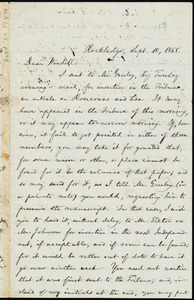 Rockledge, Sept. 10, 1868.
Dear Wendell:
I sent to Mr. Greeley, by Tuesday
evening's mail, for insertion in the Tribune,
an article on Rosecrans and Lee. It may
have appeared in the Tribune of this morning,
or it may appear to-morrow morning. If, how-
ever, it fail to get printed in either of those
numbers, you may take it for granted that,
for some reason or other, a place cannot be
found for it in the columns of that paper; and
so may send for it, as I told Mr. Greeley (in
a private note) you would, requesting him to
preserve the manuscript. In that case, I wish
you to hand it, without delay, to Mr. Tilton or
Mr. Johnson for insertion in the next Independ-
ent, if acceptable, and if room can be found;
for it will be rather out of date to have it
go over another week. You need not mention
that it was first sent to the Tribune; and, in-
stead of my initials at the end, you may